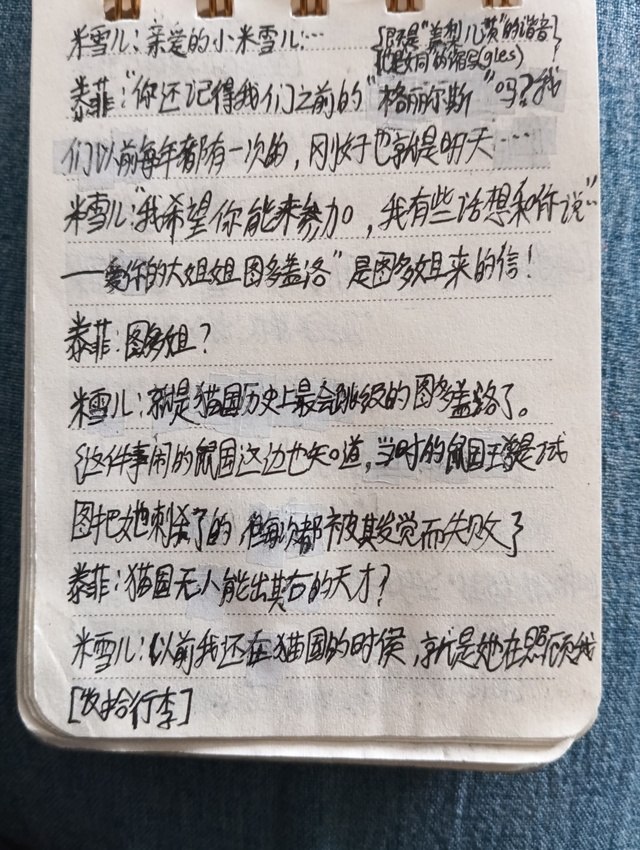 米雪儿：亲爱的小米雪儿…
{既是“美梨儿茨”的谐音
也是女同的缩写(gles)}
泰菲：“你还记得我们之前的“格丽尔斯”吗？我
们以前每年都有一次的，刚好也就是明天……
米雪儿：“我希望你能来参加，我有些话想和你说”
——爱你的大姐姐图多盖洛”是图多姐来的信！
泰菲：图多姐？
米雪儿：就是猫国历史上最会跳级的图多盖洛了。
{这件事闹的鼠国这边也知道，当时的鼠国王曾是试
图把她刺杀了的，但每次都被其发觉而失败了
泰菲：猫国无人能出其右的天才？
米雪儿：以前我还在猫国的时候，就是她在照顾我
[收拾行李]